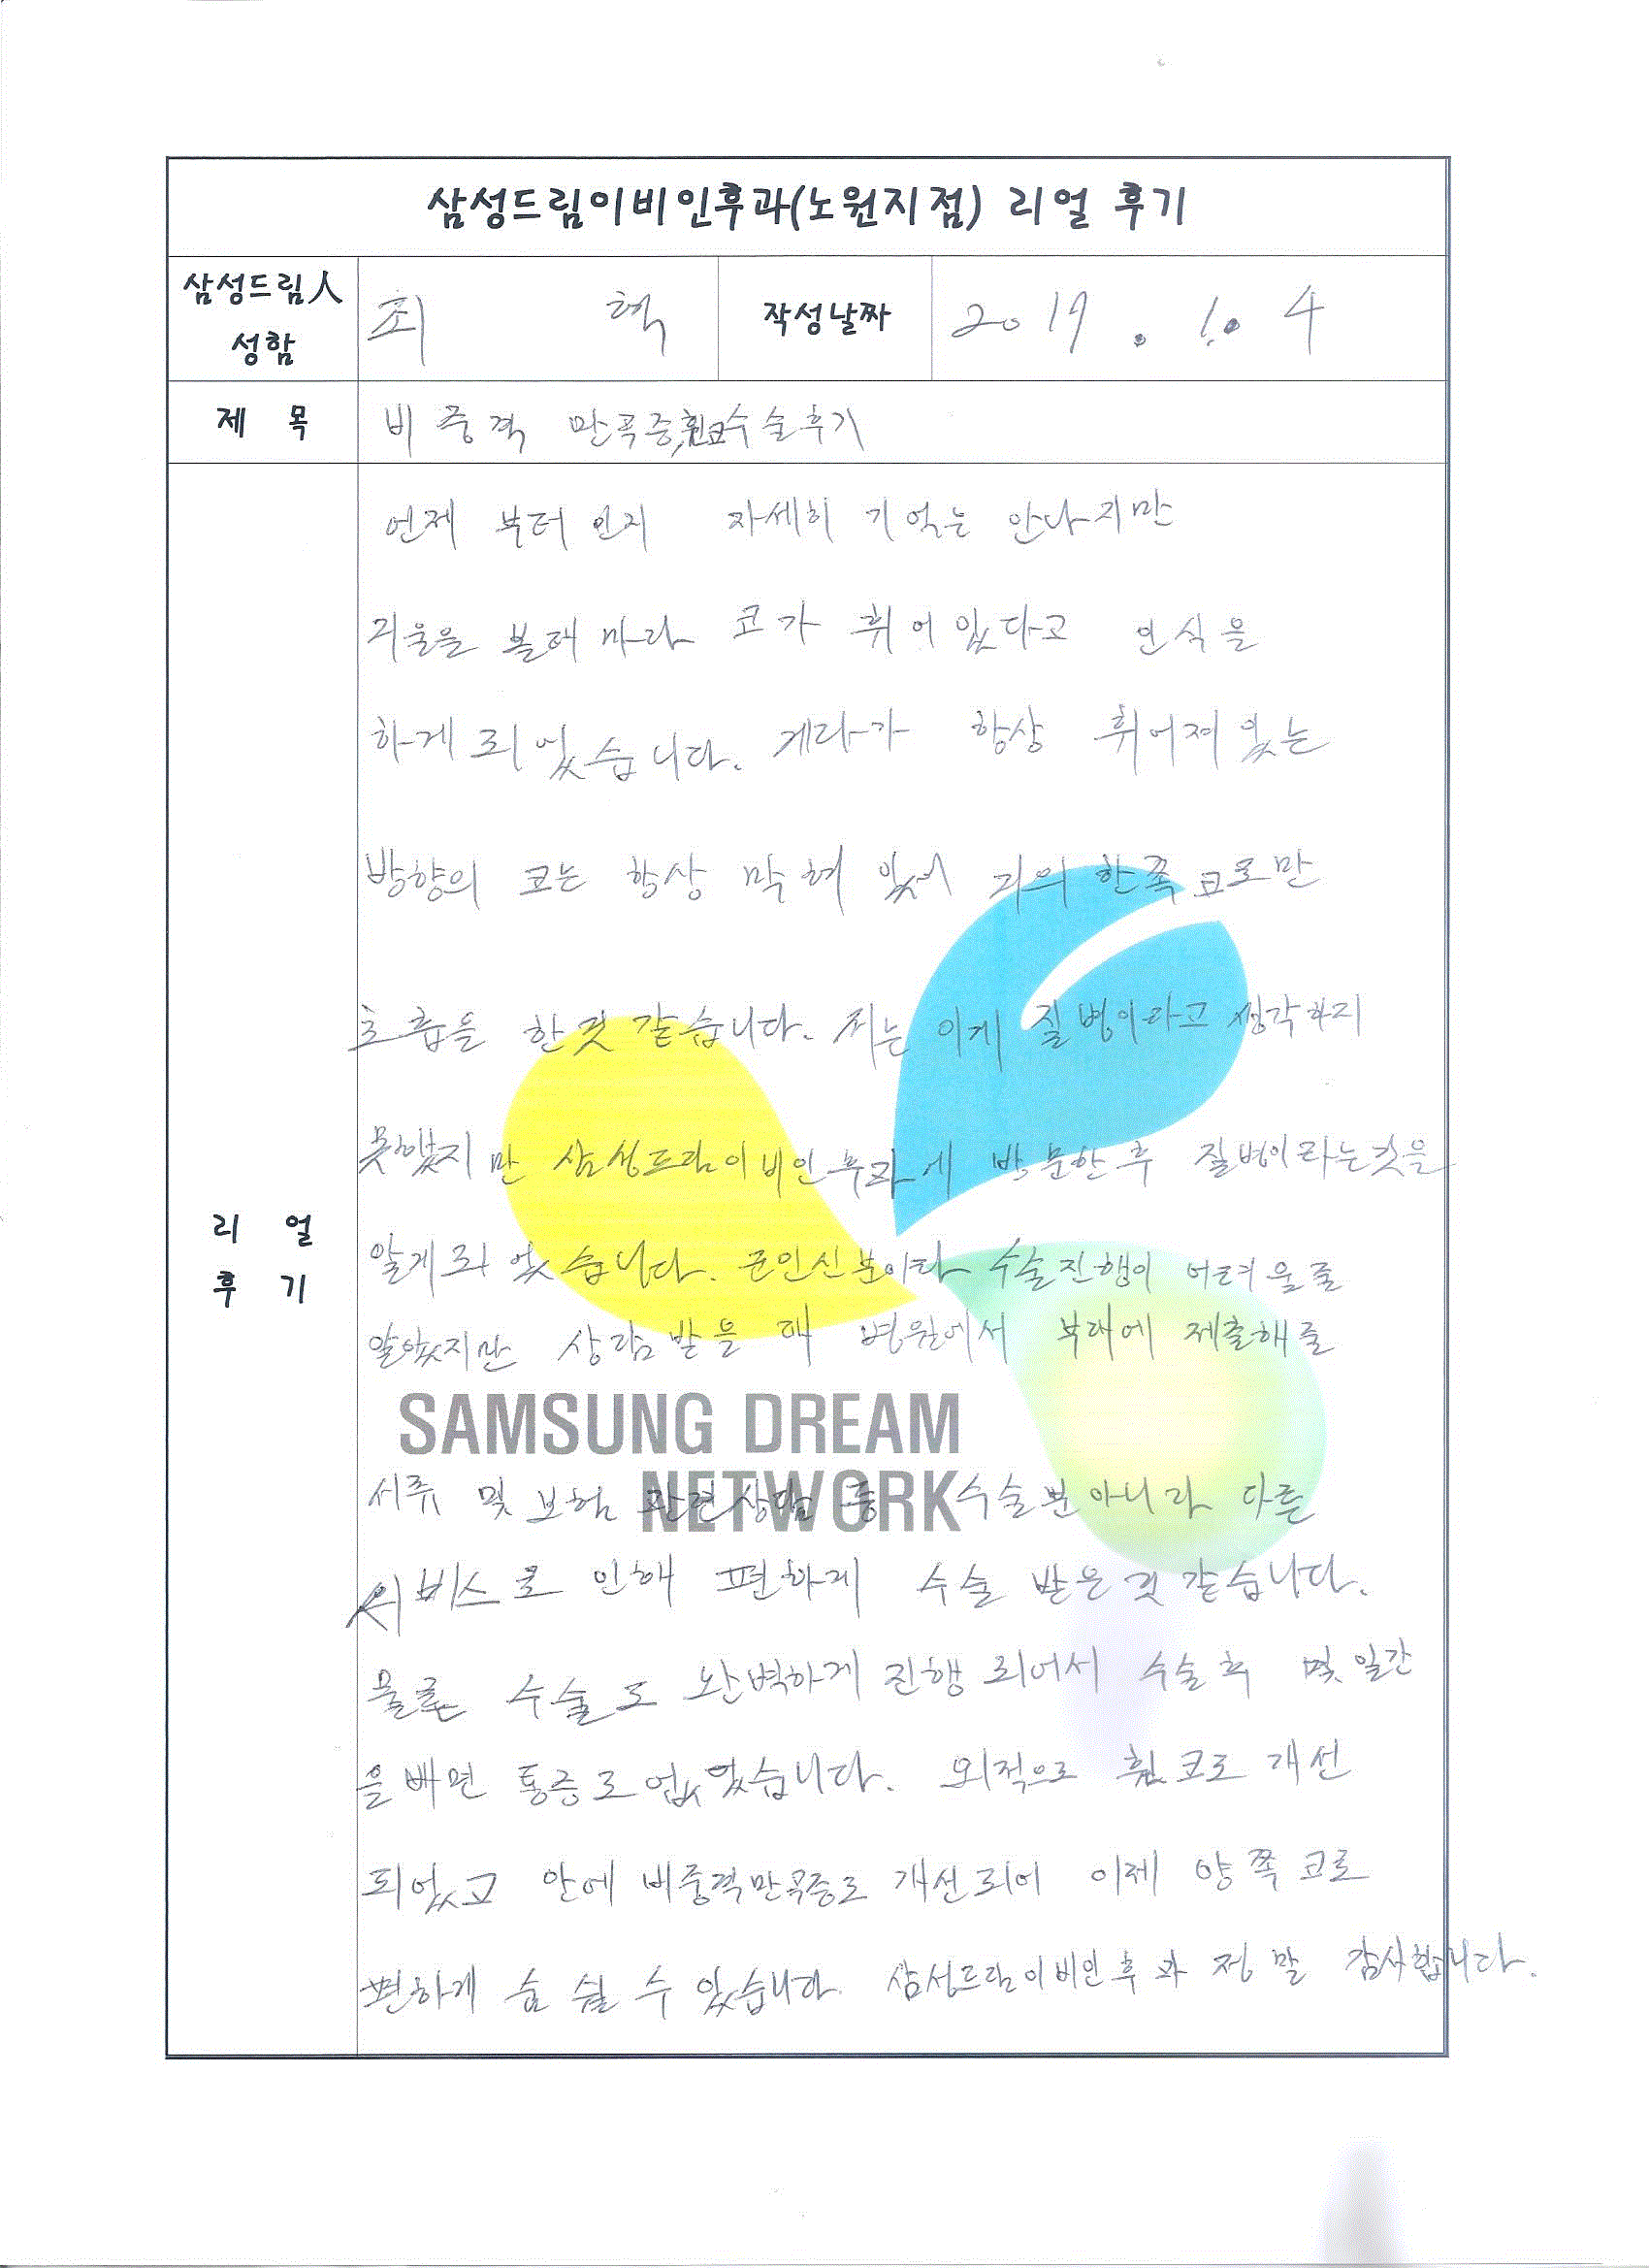 삼성드림이비인후과(노원지점) 리얼 후기
삼성드림人 성함 최 혁 작성날짜 2019 . 1. 4
제 목 비중격 만곡증,휜코수술후기
언제 부터 인지 자세히 기억는 안나지만
거울을 볼때 마다 코가 휘어 있다고 인식을
하게 되었습니다. 게다가 항상 휘어져 있는
방향의 코는 항상 막혀 있어 거의 한쪽 코로만
호흡을 한것 같습니다. 저는 이게 질병이라고 생각하지
못했지만 삼성드림이비인후과에 방문한 후 질병이라는것을
리 얼
후 기
알게 되었습니다. 군인신분이라 수술진행이 어려울줄
알았지만 상담받을 때 병원에서 부대에 제출해줄
SAMSUNG DREAM
NETWORK
서류 및 보험 관련상담 등 수술뿐아니라 다른
서비스로 인해 편하게 수술 받은것 같습니다.
물론 수술도 완벽하게 진행 되어서 수술후 몇일간
을빼면 통증도 없었습니다. 외적으로 휜코도 개선
되었고 안에 비중격만곡증도 개선되어 이제 양쪽 코로
편하게 숨 쉴 수 있습니다. 삼성드림이비인후과 정말 감사합니다.